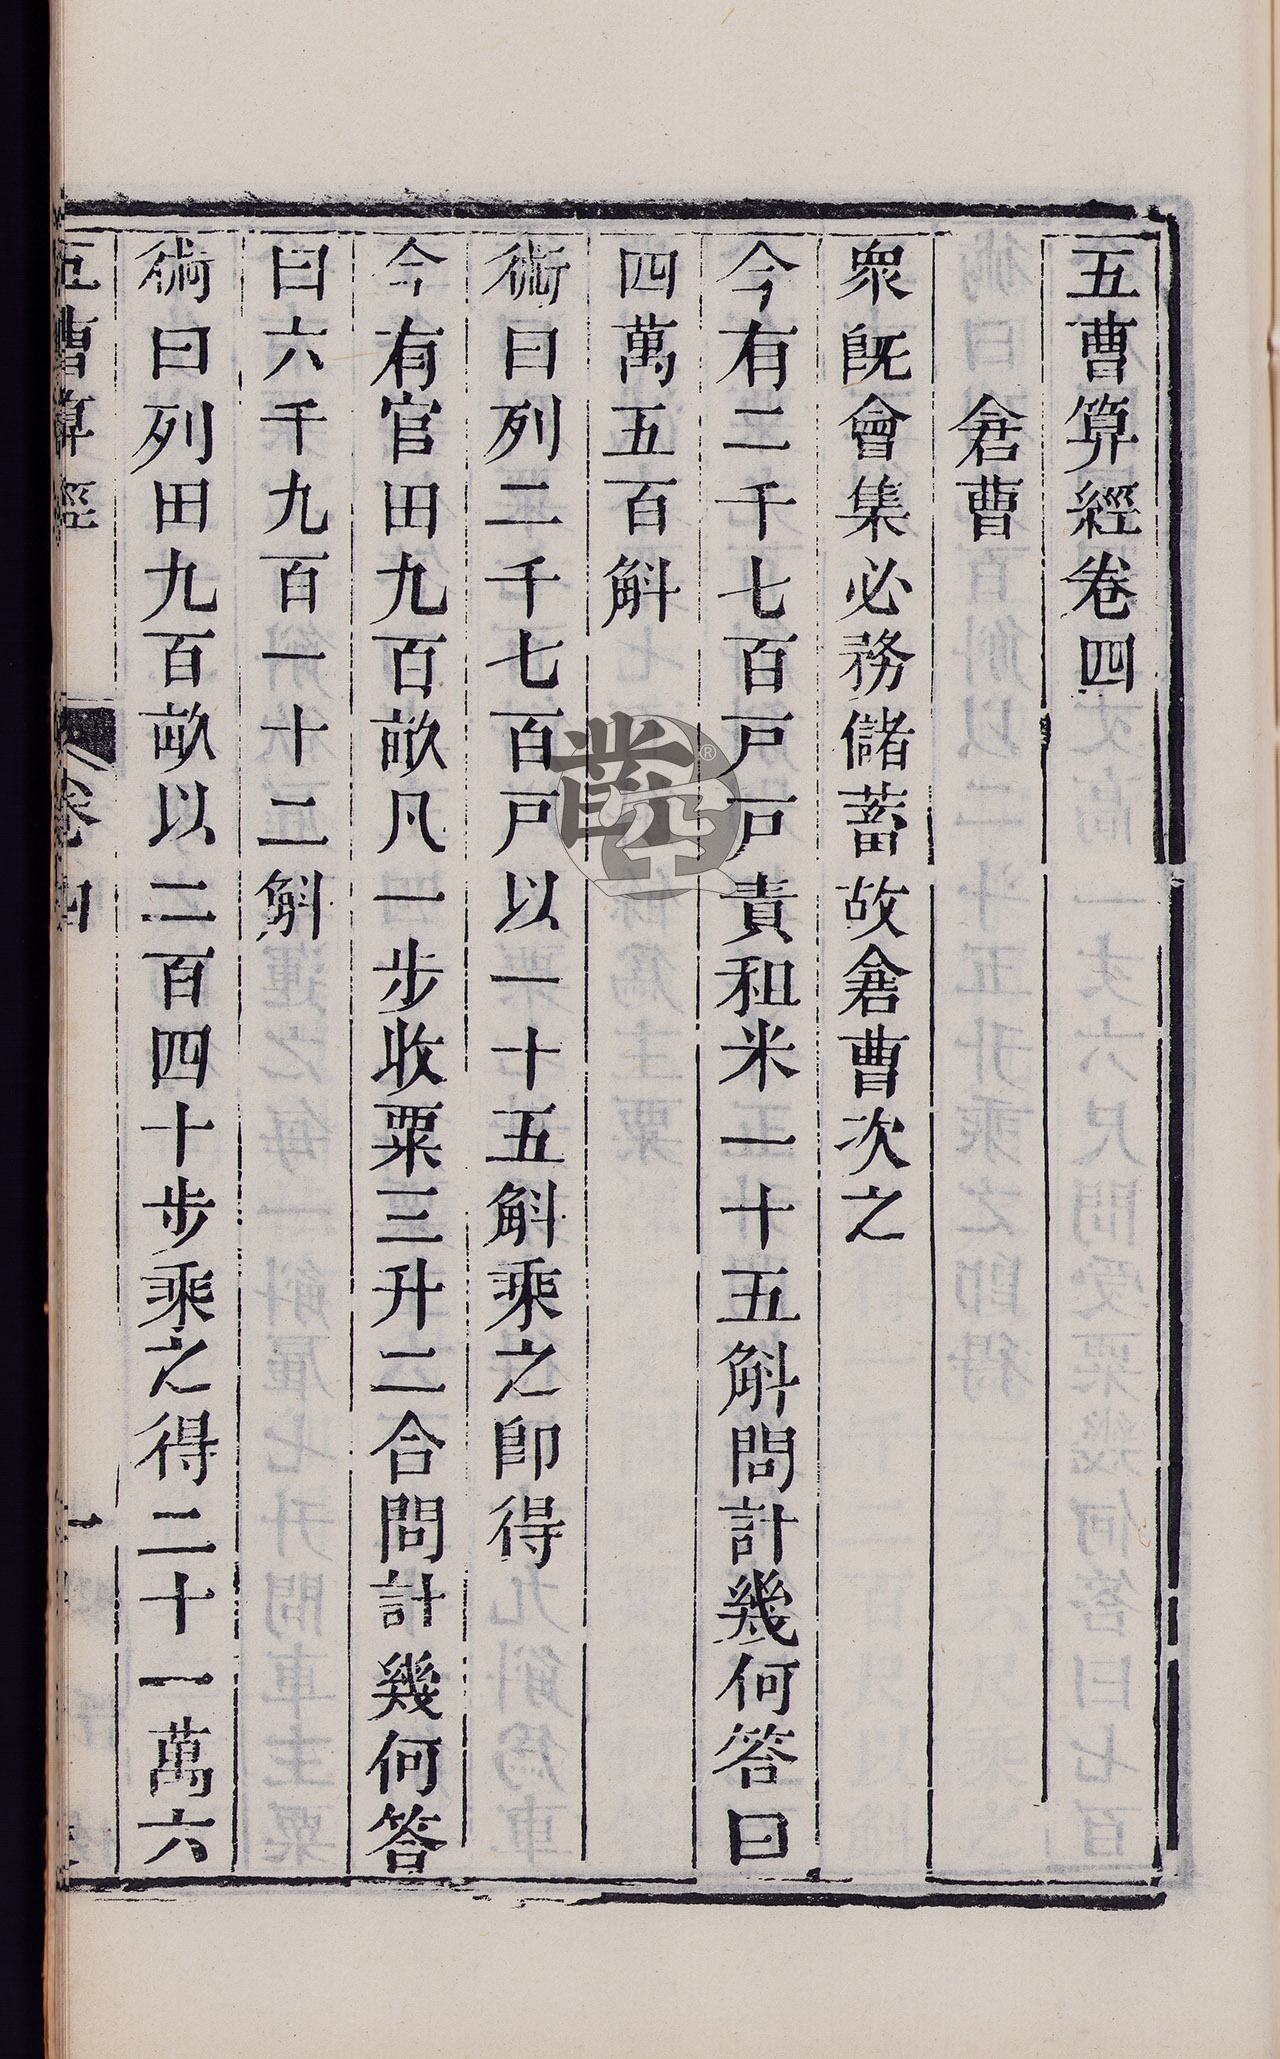 五曹算經卷四
倉曹
衆旣會集必務儲蓄故倉曹次之
今有二千七百戸戸責租米一十五斛問計幾何答曰
四萬五百斛
術曰列二千七百戸以一十五斛乘之卽得
今有官田九百畝凡一步收粟三升二合問計幾何答
曰六千九百一十二斛
術曰列田九百畝以二百四十步乘之得二十一萬六
五曹算經 卷四 一